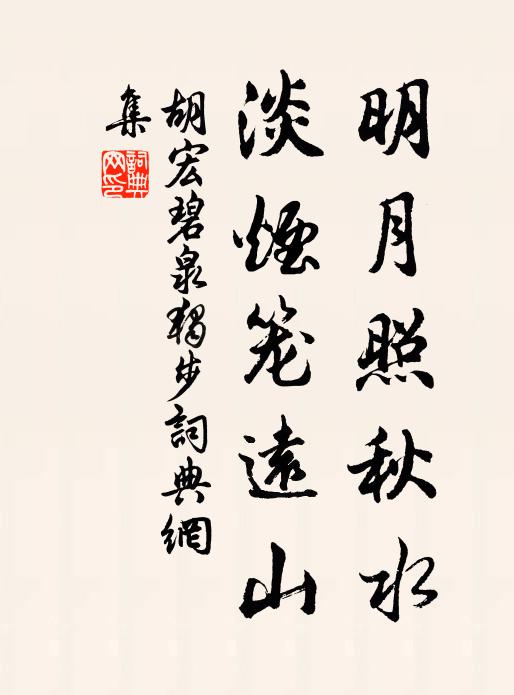 明月照秋水
淡煙笼遠山
胡宏碧泉獨步詞典網
集
詞典
网印